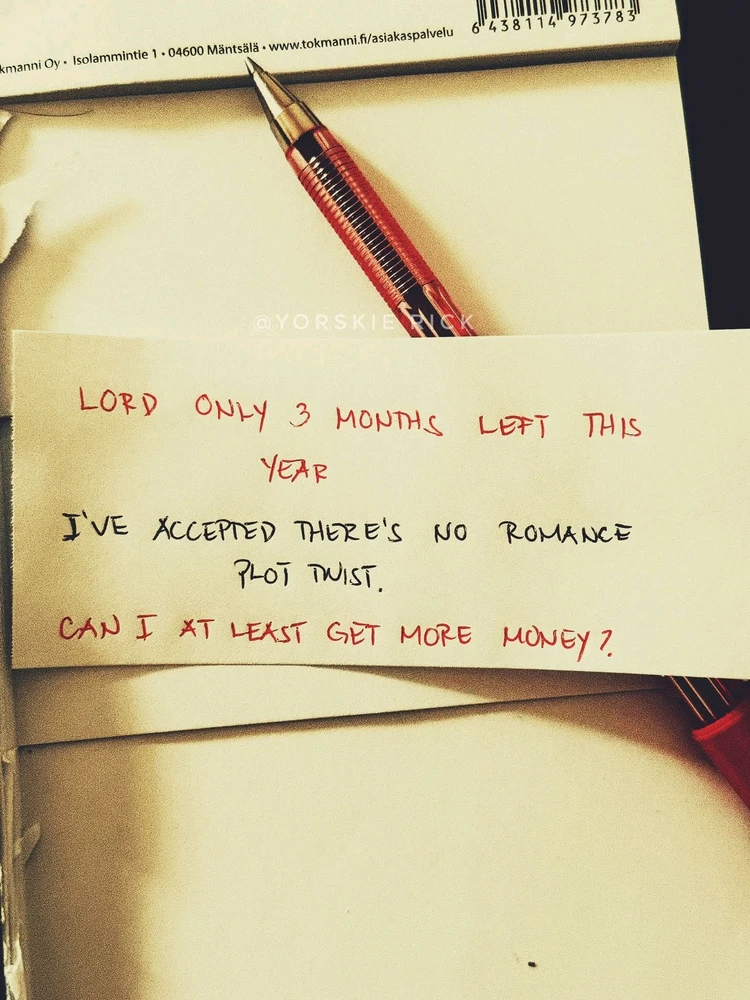 kmanni Oy • Isolammintie 1 • 04600 Mäntsälä • www.tokmanni.fi/asiakaspalvelu
6 438114 973783
@YORSKIE RICK
LORD ONLY 3 MONTHS LEFT THIS
YEAR
I'VE ACCEPTED THERE'S NO ROMANCE
PLOT TWIST.
CAN I AT LEAST GET MORE MONEY?